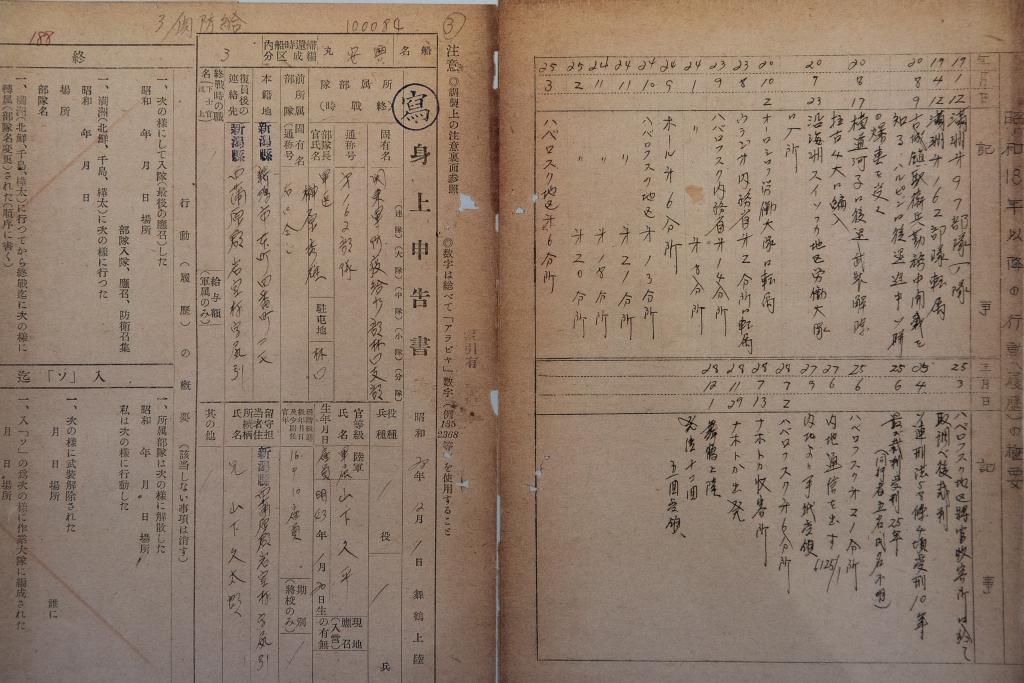 昭和18年以降の行動(履歴)の概要
年 月 日
記
事
19 1 12 満洲第97部隊入隊
19 4 12 満洲第162部隊転属
20 8 9 古城鎮駅衛兵勤務中開戦を
知る
の爆撃を受く
20 8 17 横道河子に後退武装解除
拉古4大に編入
20 9 23 沿海州スイソフカ地区労働大隊
に入所
20 10 2 オーロンコフ労働大隊に転属
23 8 ウラジオ内務省第2分所に転属
23 9 ハバロフスク内務省第14分所
24 1 〃 第8分所
24 6 ホール第6分所
24 10 9 ハバロフスク地区第13分所
24 11 〃 〃 第21分所
24 11 〃 第18分所
25 1 2 〃 第20分所
25 3 ハバロフスク地区第6分所
年 月 日
記
事
25 3 ハバロフスク地区将官収容所に於て
取調べ後裁判
25 4 ソ連刑法58條4項受刑10年
25 6 最終裁判受刑25年
(同行者五名氏名不明)
25 6 ハバロフスク第21分所
27 6 内地通信を出す
27 9 内地より手紙受領
28 7 2 ハバロフスク第6分所
28 7 13 ナホトカ収容所
28 11 29 ナホトカ出発
28 12 1 舞鶴上陸
五回受領
③
100084
注意
◎調製上の注意裏面参照
◎数字は総べて「アラビヤ」数字(例135 2368等)を使用すること
索引有
寫
身上申告書
昭和28年12月1日舞鶴上陸
船名
興安丸
帰還時船内編成区分
3
所属部隊(終戦時)
固有名
関東軍野戦貨物廠林口支廠
(連隊)(大隊)(中隊)(小隊)(分隊)
通称号
満第162部隊
部隊長官氏名
榊原秀雄
駐屯地
林口
前所属部隊
固有名
(通称号)
本籍地
新潟縣
復員後の連絡先
新潟縣
西蒲原郡岩室村字夏引
終戦時の職名
給与額
(軍属のみ)
役種
役
兵種
兵
官等級
陸軍
氏名
山下久平
生年月日
明43年1月20日生
現地應召(入営)の有無
期別
(将校のみ)
留守担当者住所
新潟縣西蒲原郡岩室村字夏引
氏名続柄
兄 山下久太郎
其の他
行動(履歴)の概要(該当しない事項は消す)
終
一、次の様にして入隊(最後の應召)した
昭和 年 月 日 場所
部隊入隊、應召、防衛召集
一、満洲(北鮮、千島、樺太)に次の様に行つた
昭和 年 月 日
場所
部隊名
一、満洲(北鮮、千島、樺太)に行つてから終戦迄に次の様に
轉属(部隊名変更)された(順序に書く)
月 日
入「ソ」迄
一、所属部隊は次の様に解散した
昭和 年 月 日 場所
私は次の様に行動した
一、次の様に武装解除された
月 日 場所
誰に
一、入「ソ」の為次の様に作業大隊に編成された
月 日 場所
188